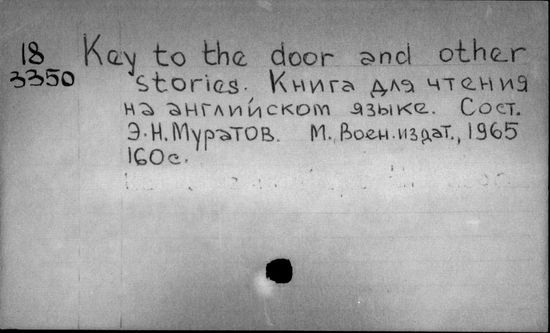 18 Key to the door and other
3350 stories. Книга для чтения
на английском языке. Сост.
Э.Н.Муратов. М., Воен.издат., 1965
160с.